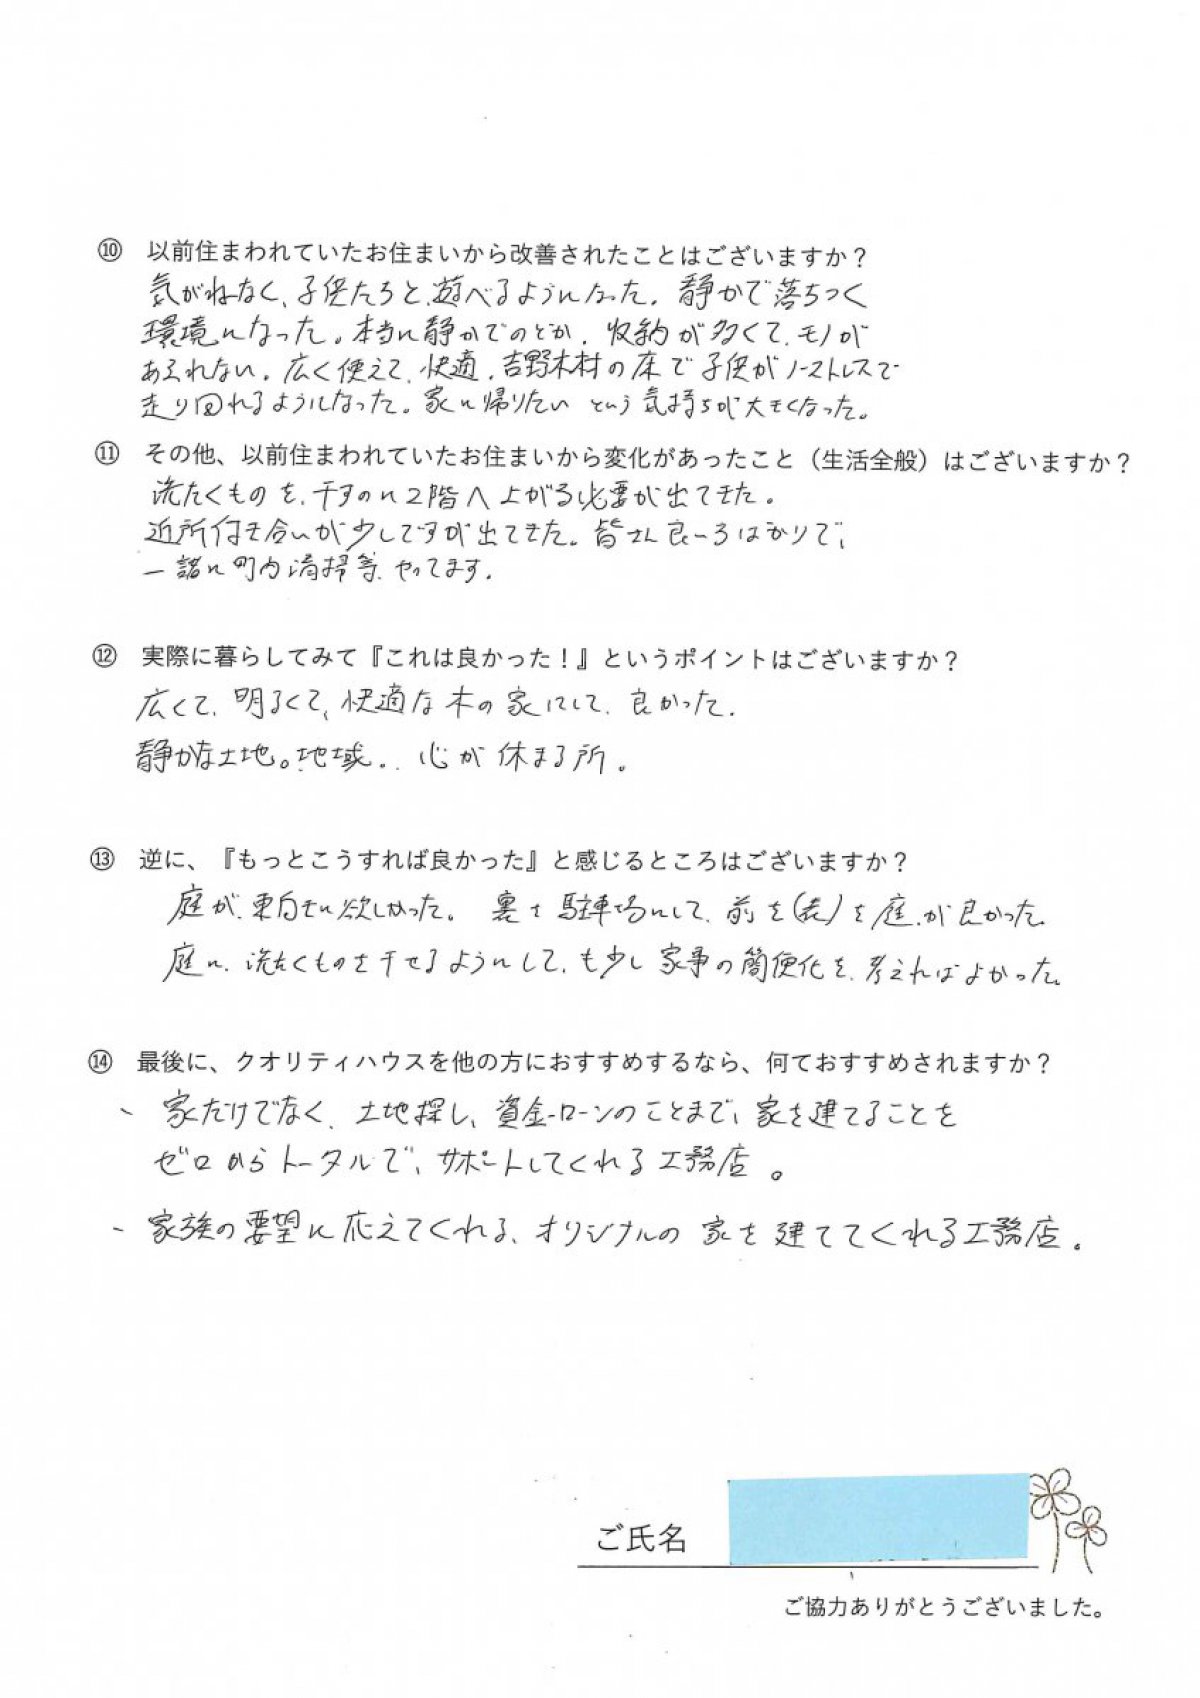 ⑩ 以前住まわれていたお住まいから改善されたことはございますか？
気がねなく、子供たちと、遊べるようになった。静かで落ちつく
環境になった。本当に静かでのどか。収納が多くて、モノが
あふれない。広く使えて、快適。吉野木材の床で子供がノーストレスで
走り回れるようになった。家に帰りたいという気持ちが大きくなった。
⑪ その他、以前住まわれていたお住まいから変化があったこと（生活全般）はございますか？
洗たくものを、干すのに2階へ上がる必要が出てきた。
近所付き合いが少しですが出てきた。皆さん良い方ばかりで、
一諸に町内清掃等、やってます。
⑫ 実際に暮らしてみて『これは良かった！』というポイントはございますか？
広くて、明るくて、快適な木の家にして、良かった。
静かな土地。地域。心が休まる所。
⑬ 逆に、『もっとこうすれば良かった』と感じるところはございますか？
庭が、東向きに欲しかった。裏を駐車場にして、前を(表)を庭が良かった。
庭に、洗たくものを干せるようにして、も少し家事の簡便化を、考えればよかった。
⑭ 最後に、クオリティハウスを他の方におすすめするなら、何ておすすめされますか？
、家だけでなく、土地探し、資金ローンのことまで、家を建てることを
ゼロからトータルで、サポートしてくれる工務店。
、家族の要望に応えてくれる、オリジナルの家を建ててくれる工務店。
ご氏名
ご協力ありがとうございました。